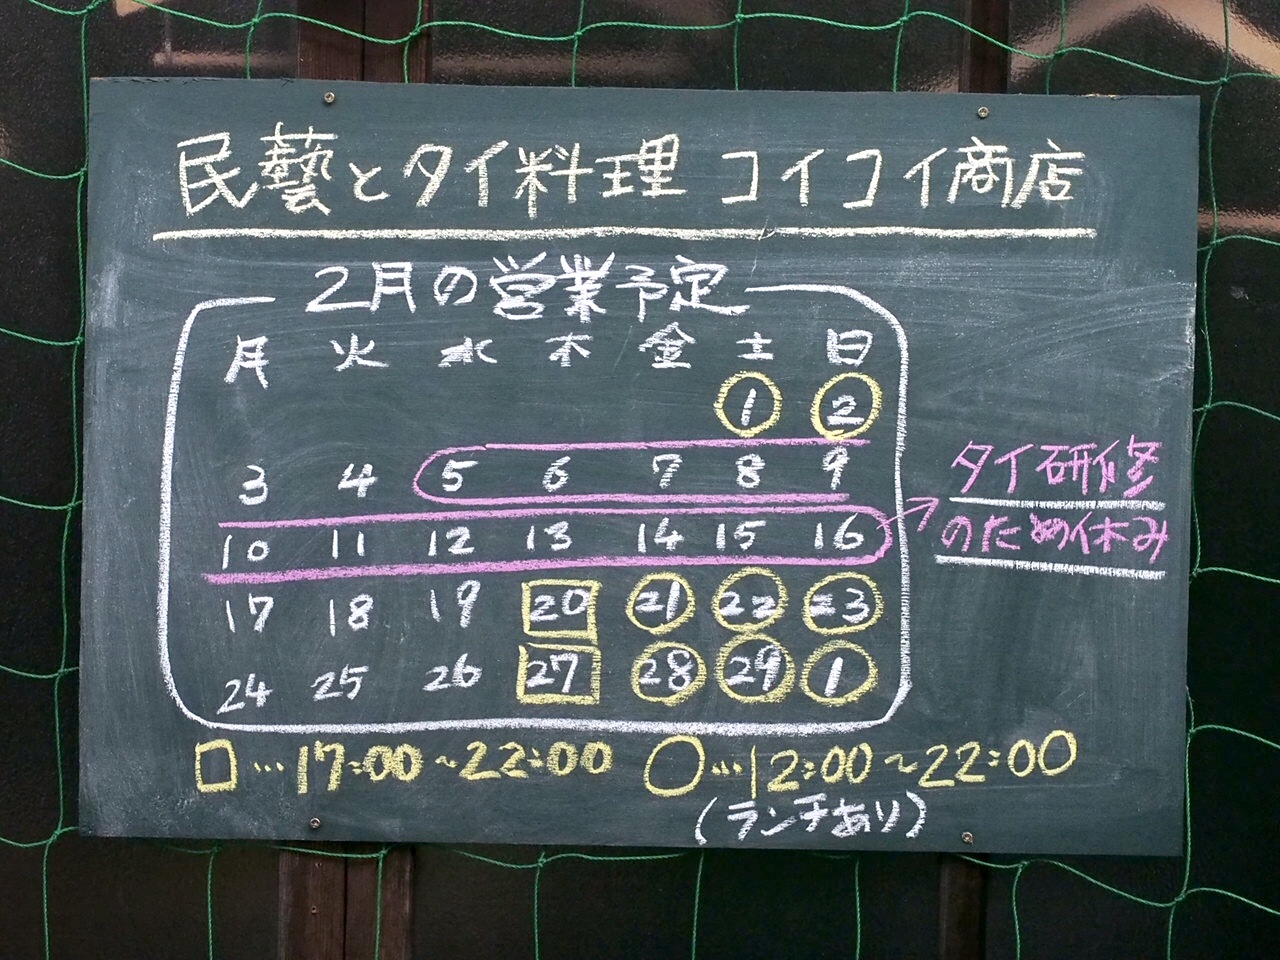 民藝とタイ料理 コイコイ商店
2月の営業予定
月 火 水 木 金 土 日
1 2
3 4 5 6 7 8 9
タイ研修
のため休み
10 11 12 13 14 15 16
17 18 19 20 21 22 23
24 25 26 27 28 29 1
□…17:00~22:00 ○…12:00~22:00
(ランチあり)